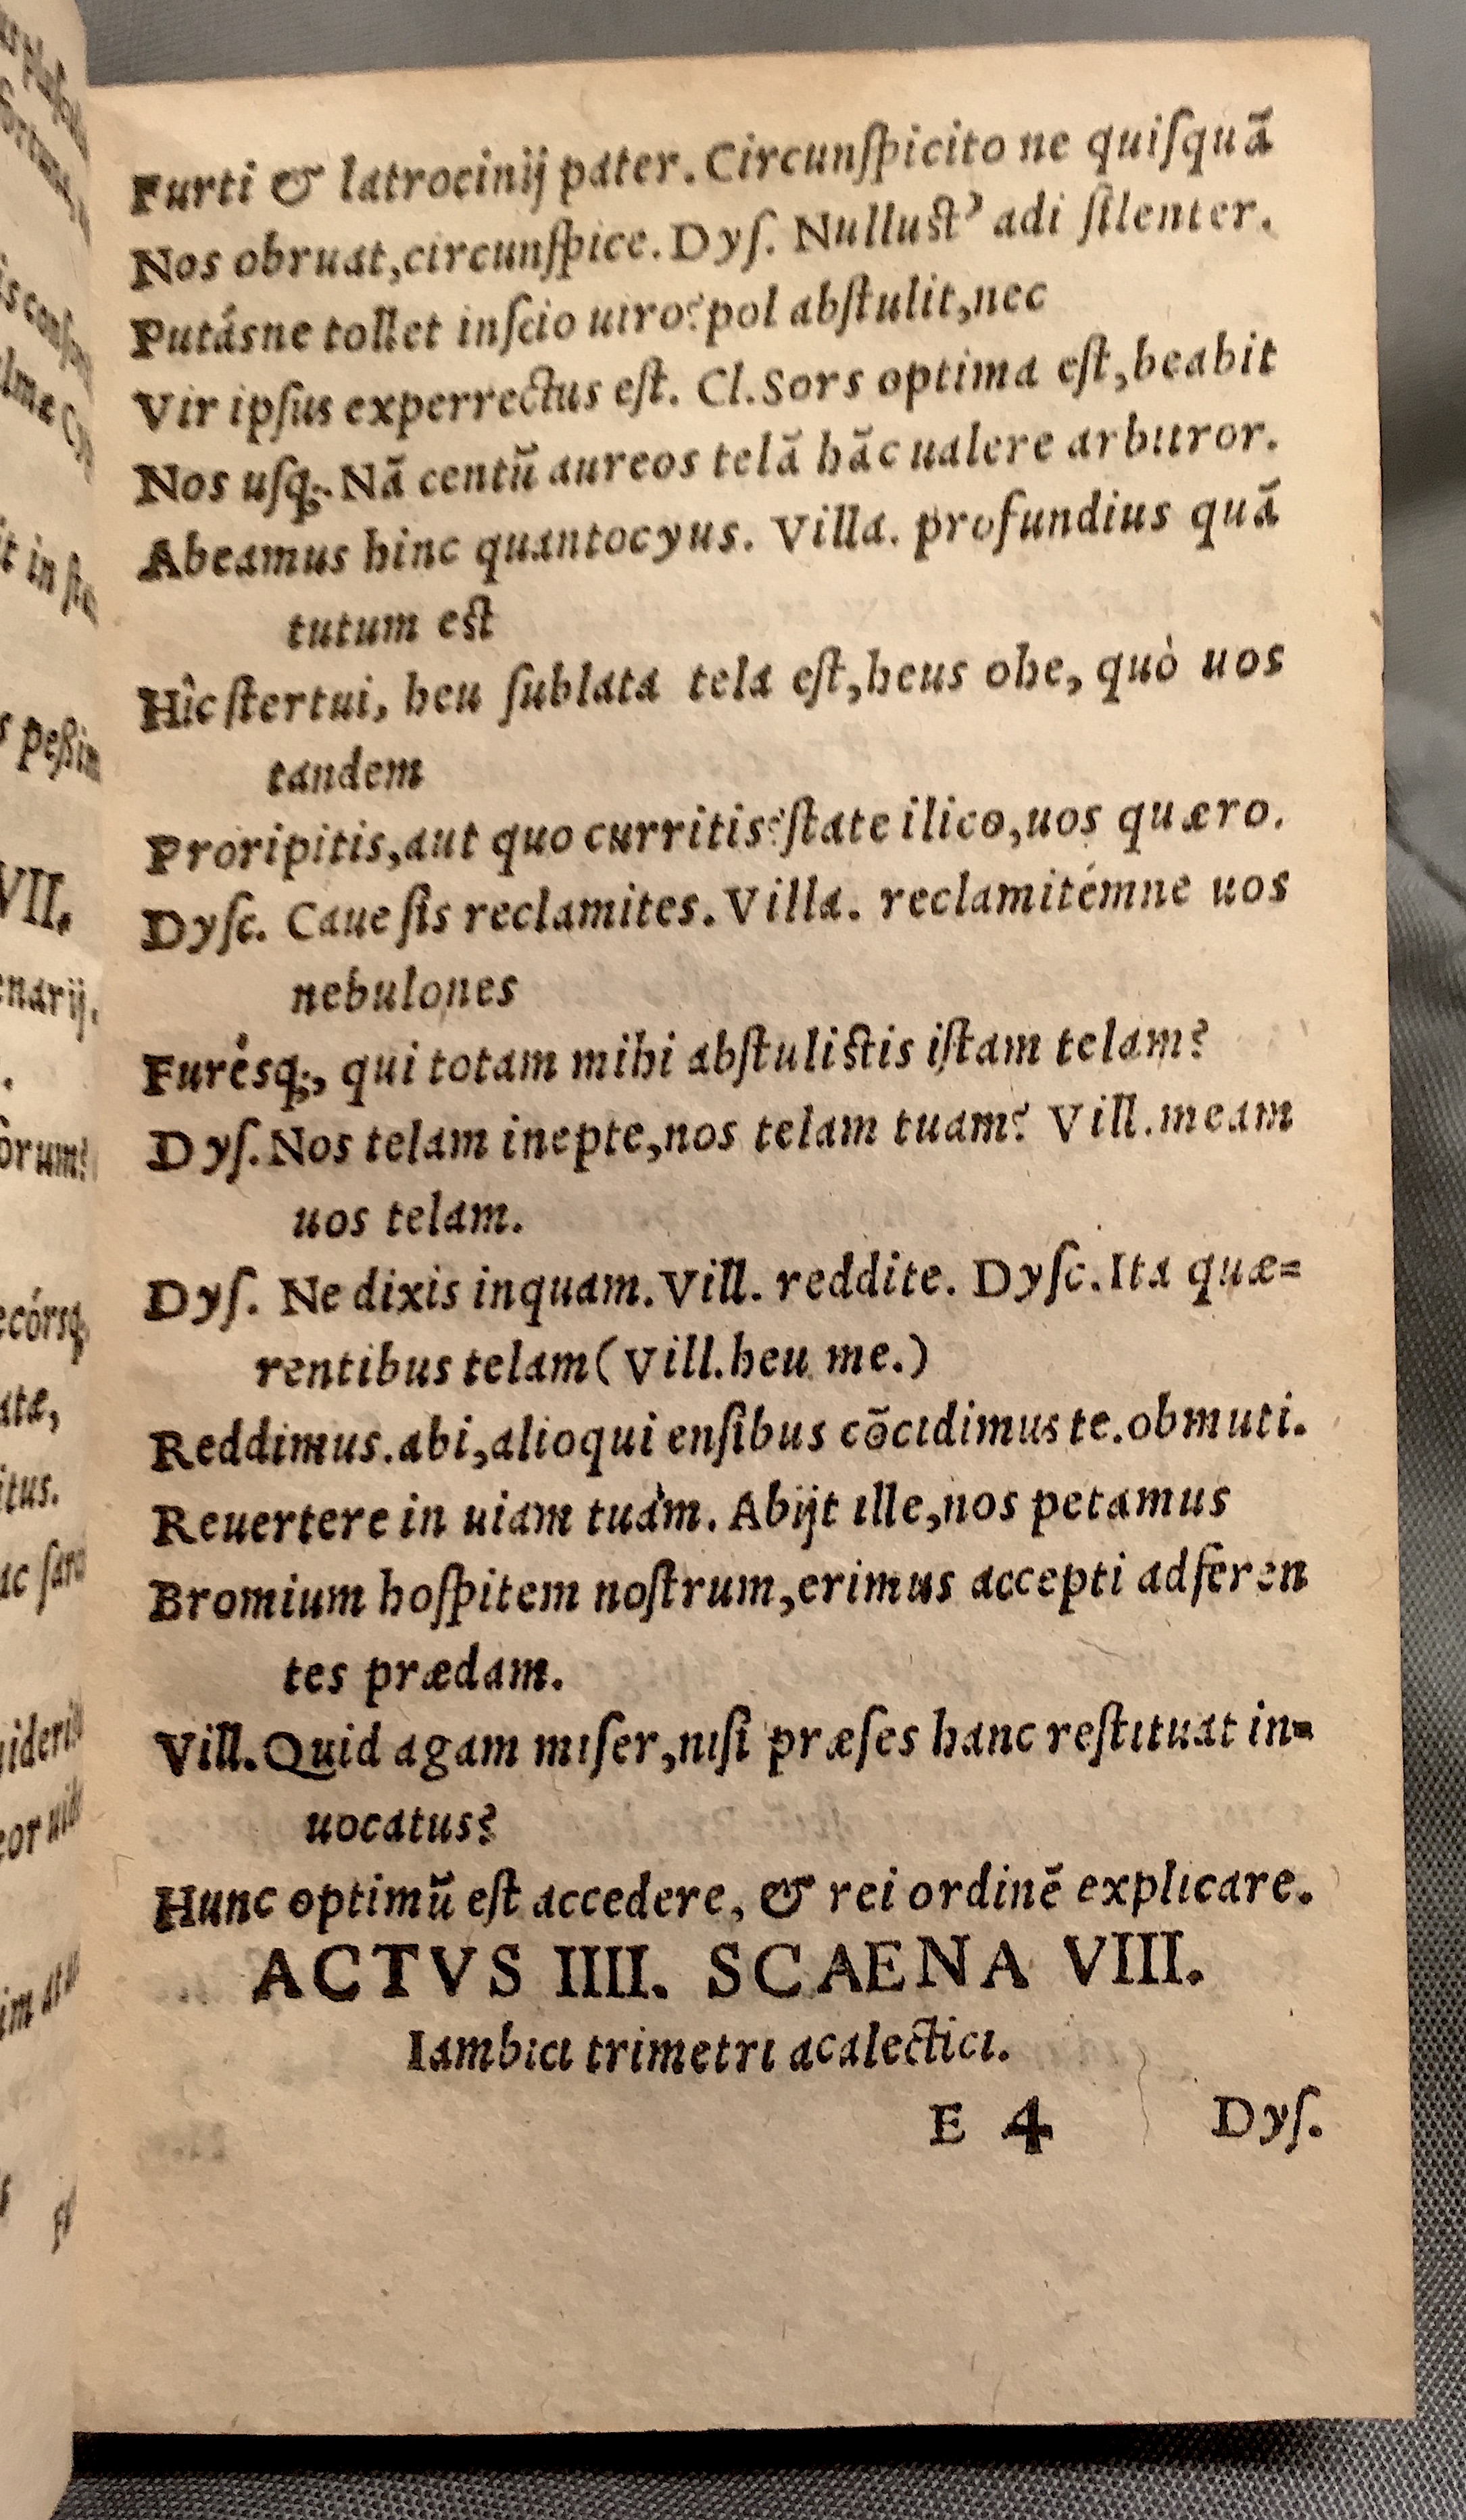 Furti & latrocinij pater. Circunſpicito ne quiſquã
Nos obruat, circunſpice. Dyſ. Nulluſt' adi ſilenter.
Putásne tollet inſcio uiro? pol abſtulit, nec
Vir ipſus experrectus eſt. Cl. Sors optima eſt, beabit
Nos uſq;. Nã centũ aureos telã hãc ualere arbitror.
Abeamus hinc quantocyus. Villa. profundius quã
tutum eſt
Hîc ſtertui, heu ſublata tela eſt, heus ohe, quò uos
tandem
Proripitis, aut quo curritis? ſtate ilico, uos quæro.
Dyſc. Caue ſis reclamites. Villa. reclamitémne uos
nebulones
Furésq;, qui totam mihi abſtuliſtis iſtam telam?
Dyſ. Nos telam inepte, nos telam tuam? Vill. meam
uos telam.
Dyſ. Ne dixis inquam. Vill. reddite. Dyſc. Ita quæ=
rentibus telam (Vill. heu me.)
Reddimus. abi, alioqui enſibus cõcidimus te. obmuti.
Reuertere in uiam tuàm. Abijt ille, nos petamus
Bromium hoſpitem noſtrum, erimus accepti adferen
tes prædam.
Vill. Quid agam miſer, niſi præſes hanc reſtituat in=
uocatus?
Hunc optimũ eſt accedere, & rei ordinẽ explicare.
ACTVS IIII. SCAENA VIII.
Iambici trimetri acalectici.
E 4 Dyſ.